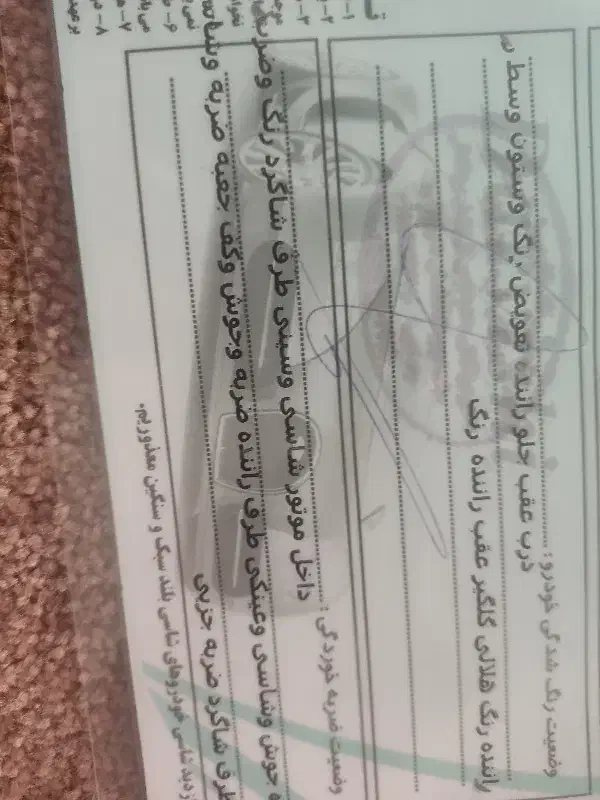 وضعیت رنگ شدگی خودرو:
درب عقب جلو راننده تعویض رنگ وستون وسط
راننده رنگ هلالی گلگیر عقب راننده رنگ
وضعیت ضربه خوردگی:
داخل موتور شاسی وسینی طرف شاگرد رنگ وضربه
جوش وشاسی وعینکی طرف راننده ضربه وجوش وکف جعبه ضربه وشاسی
طرف شاگرد ضربه جزیی
زدید شاسی خودروهای شاسی بلند سبک و سنگین معذوریم.
۱-
۲-
۳-
۶-
۷-
۸-